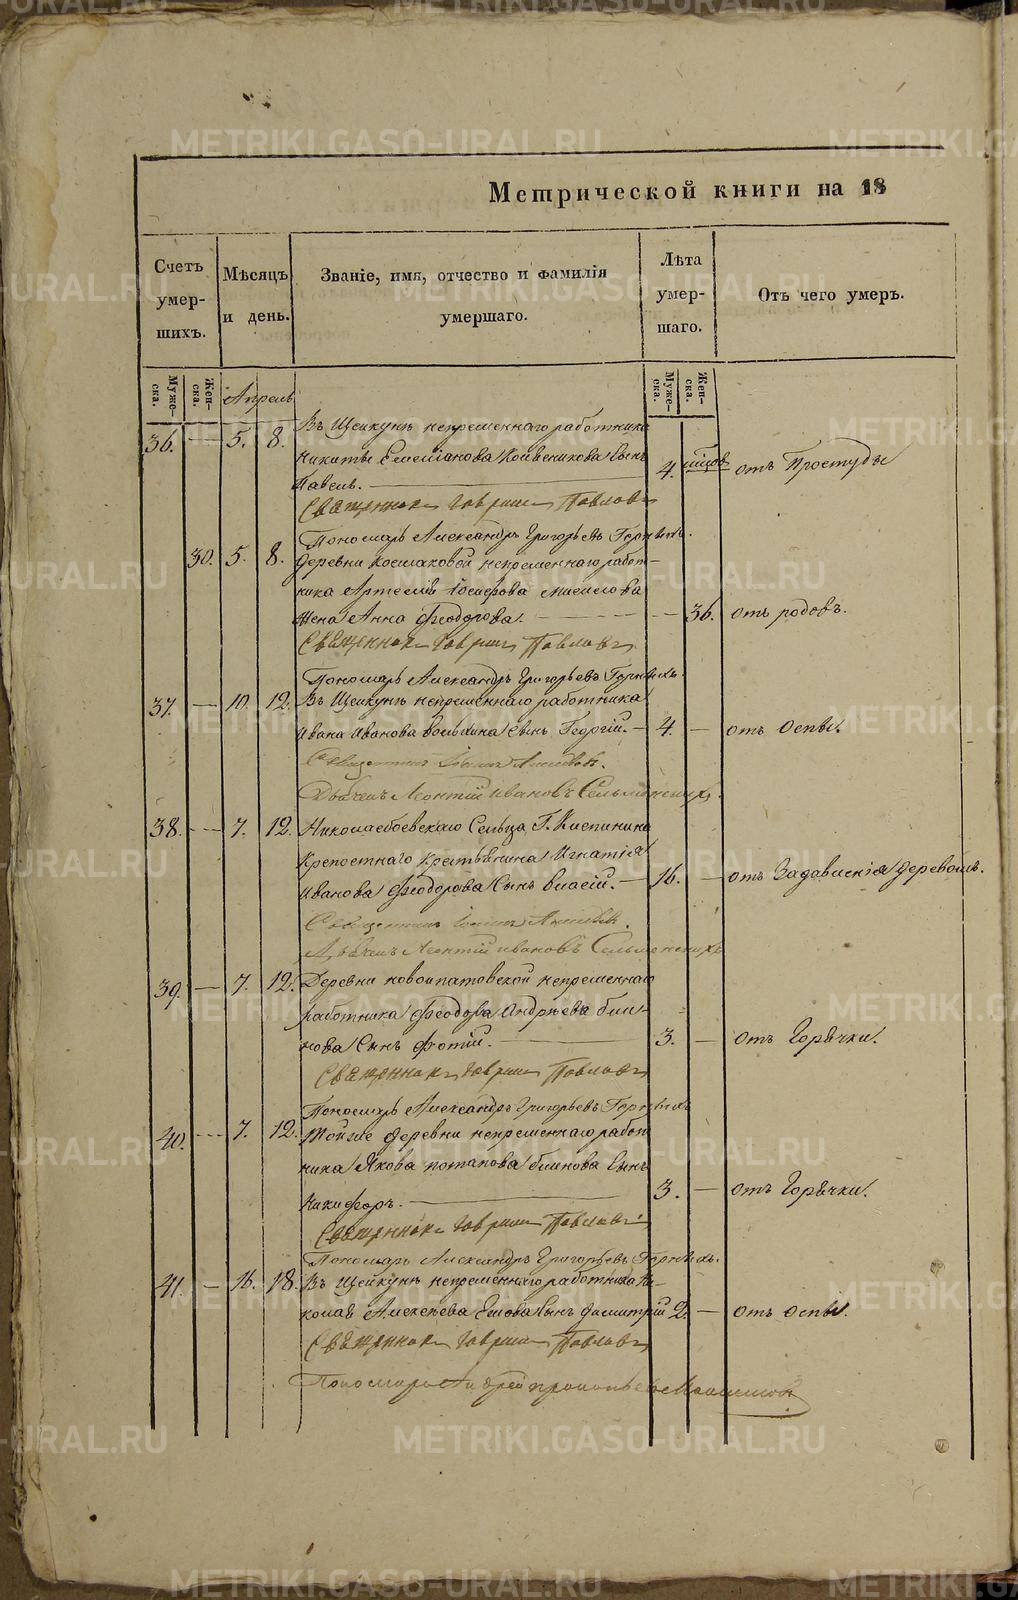 METRIKI.GASO-URAL.RU
Метрической книги на 18
Счетъ умер-шихъ.
Мѣсяцъ и день.
Званіе, имя, отчество и фамилія умершаго.
Лѣта умер-шаго.
Отъ чего умеръ.
Муже-ска.
Жен-ска.
Апрель
Муже-ска.
Жен-ска.
36. — 5. 8. Въ Щелкунѣ непременнаго работника
Никиты Емелианова сынъ
Павелъ. — 4. отъ Простуды
Священникъ Гавриилъ Павловъ
Пономарь Александръ Григорьевъ Горныхъ.
30. 5. 8. Деревни Космаковой непременнаго работ-
ника Артемія Іосифова
жена Анна Феодорова. — 36. отъ родовъ.
Священникъ Гавриилъ Павловъ
Пономарь Александръ Григорьевъ Горныхъ.
37. — 10. 12. Въ Щелкунѣ непременнаго работника
Ивана Иванова сынъ Георгій. — 4. — отъ Оспы.
Священникъ Іоаннъ
Леонтій Ивановъ Сельменскихъ.
38. — 7. 12. Сельца Г.
Крепостнаго Крестьянина Игнатія
Иванова Феодорова сынъ Власій. — 16. — отъ Задавленія деревомъ.
Священникъ Іоаннъ
Леонтій Ивановъ Сельменскихъ
39. — 7. 12. Деревни Новоипатовской непременнаго
работника Феодора Андрѣева Бли-
нова сынъ Фотій. — 3. — отъ Горячки.
Священникъ Гавриилъ Павловъ
Пономарь Александръ Григорьевъ Горныхъ
40. — 7. 12. Тойже деревни непременнаго работ
ника Якова Потапова Блинова сынъ
Никифоръ. — 3. — отъ Горячки.
Священникъ Гавриилъ Павловъ
Пономарь Александръ Григорьевъ Горныхъ.
41. — 16. 18. Въ Щелкунѣ непременнаго работника Ни-
колая Алексеева Ершова сынъ Димитрій 2. — отъ оспы.
Священникъ Гавриилъ Павловъ